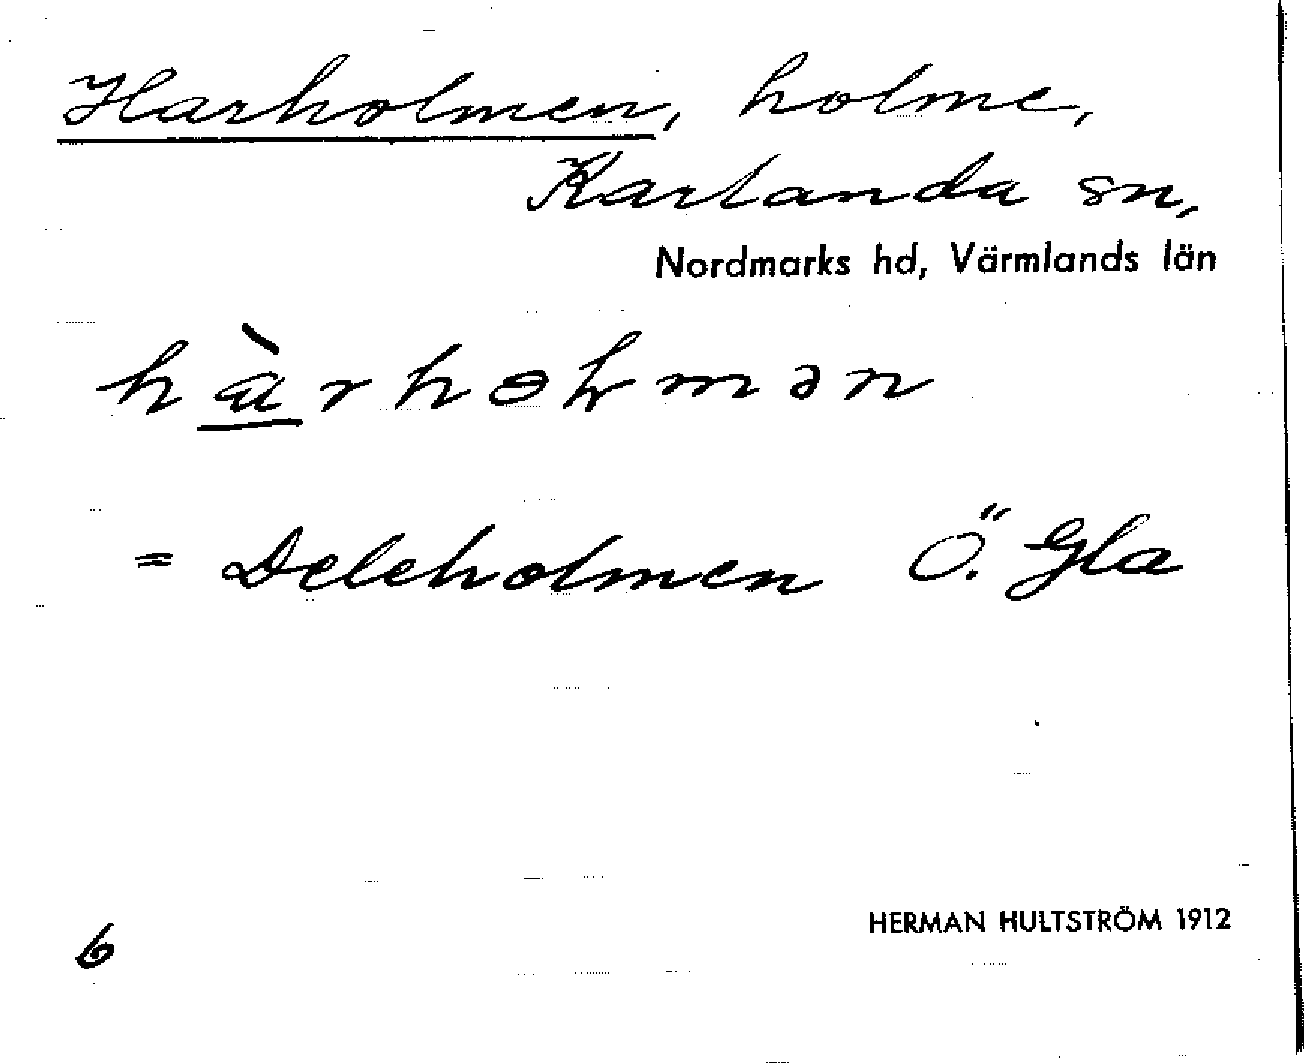 Harholmen, holme,
Karlanda sn,
Nordmarks hd, Värmlands län
hàrholmən
= Deleholmen Ö. Gla
HERMAN HULTSTRÖM 1912
6